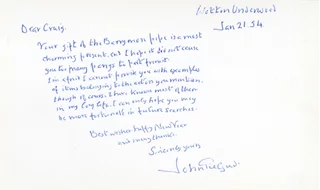 Wotton Underwood
Jan 21 94
Dear Craig,
Your gift of the Barrymore pipe is a most
charming present, and I hope it did not cause
you too many pangs to part from it.
I'm afraid I cannot provide you with examples
of items belonging to the actors you mention,
though of course, I have known most of them
in my long life. I can only hope you may
be more fortunate in future searches.
Best wishes happy New Year
and many thanks.
Sincerely yours
John Gielgud